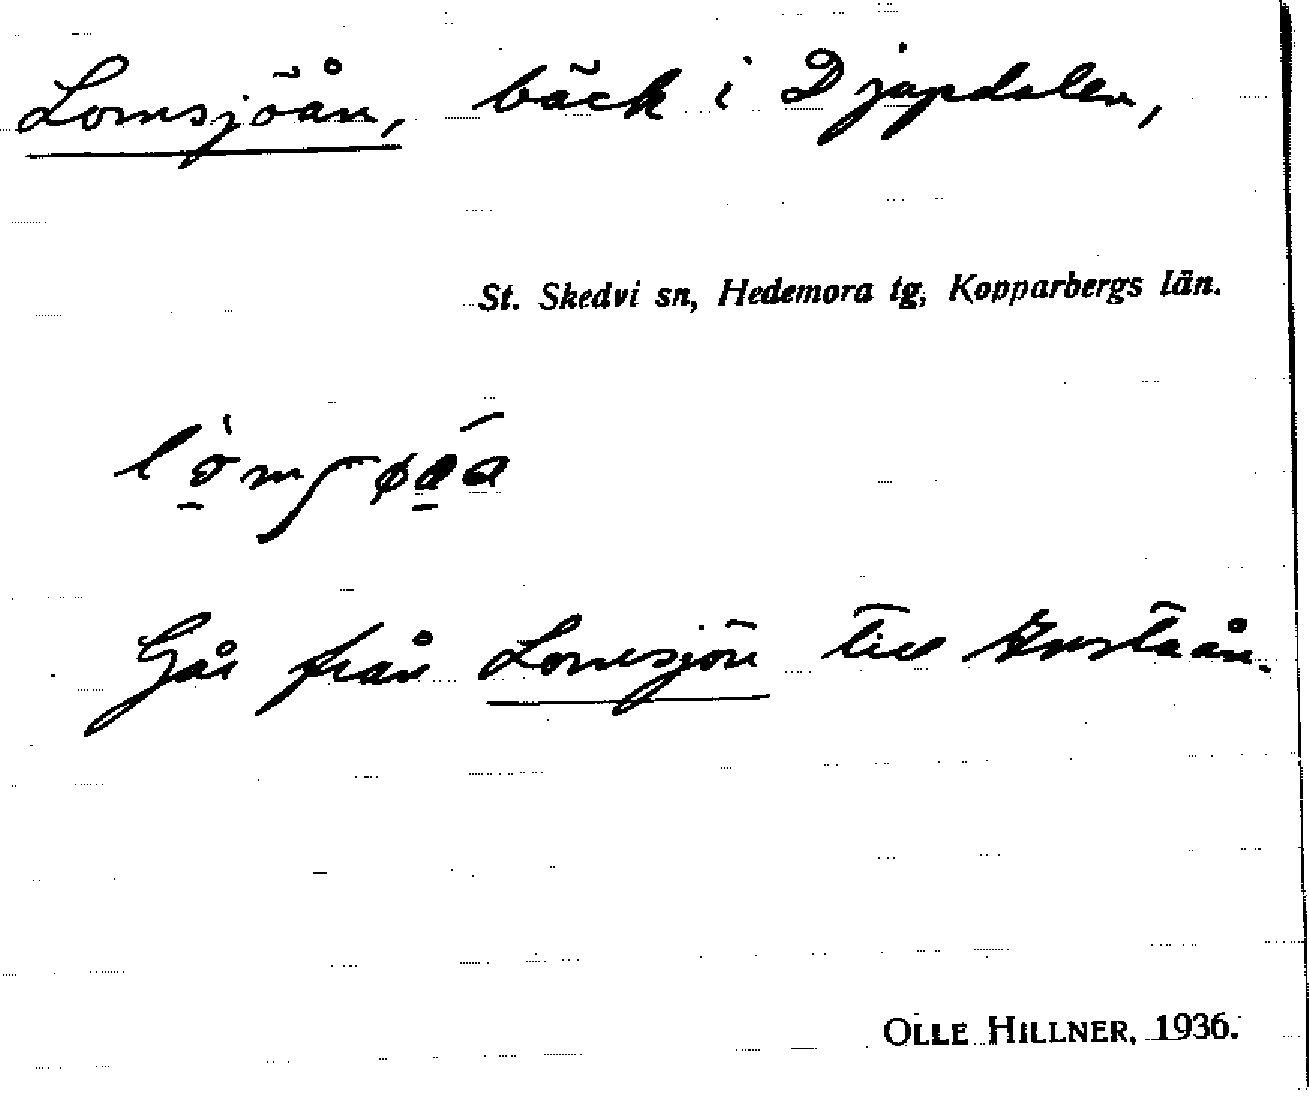 Lomsjöån, bäck i Djupdalen,
St. Skedvi sn, Hedemora tg, Kopparbergs län.
Går från Lomsjön till
OLLE HILLNER, 1936.